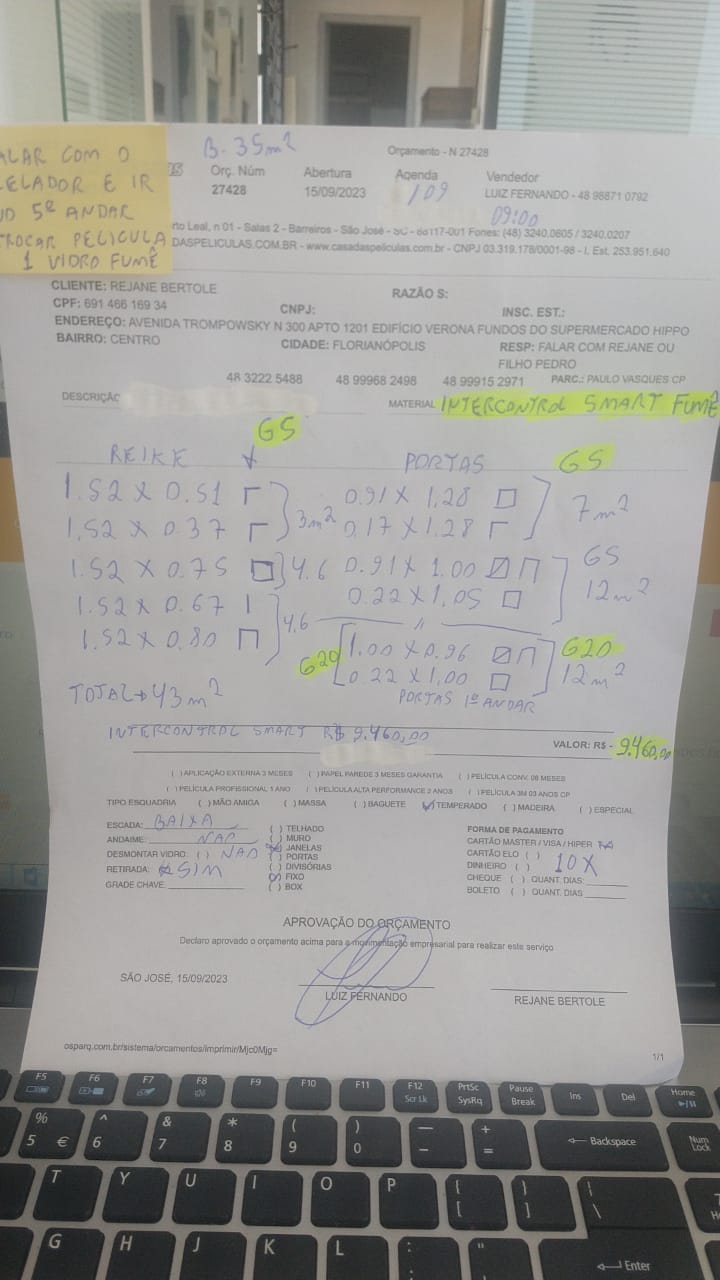 ALAR COM O
ELADOR E IR
NO 5º ANDAR
TROCAR PELICULA
1 VIDRO FUMÊ
B. 35m²
Orçamento - N 27428
Orç. Núm Abertura Agenda Vendedor
27428 15/09/2023 /109 LUIZ FERNANDO - 48 98871 0792
09:00
rto Leal, n 01 - Salas 2 - Barreiros - São José - SC - 88117-001 Fones: (48) 3240.0605 / 3240.0207
DASPELICULAS.COM.BR - www.casadaspeliculas.com.br - CNPJ 03.319.178/0001-98 - I. Est. 253.951.640
CLIENTE: REJANE BERTOLE RAZÃO S:
CPF: 691 466 169 34 CNPJ: INSC. EST.:
ENDEREÇO: AVENIDA TROMPOWSKY N 300 APTO 1201 EDIFÍCIO VERONA FUNDOS DO SUPERMERCADO HIPPO
BAIRRO: CENTRO CIDADE: FLORIANÓPOLIS RESP: FALAR COM REJANE OU
FILHO PEDRO
48 3222 5488 48 99968 2498 48 99915 2971 PARC.: PAULO VASQUES CP
DESCRIÇÃO MATERIAL INTERCONTROL SMART FUMÊ
G5
REIKE PORTAS G5
1.52 X 0.51 3m² 0.91 X 1,28 7m²
1,52 X 0.37 0.17 X 1.28
1.52 X 0.75 4.6 0.91 X 1.00 G5
1.52 X 0.67 0.22 X 1,05 12m²
1.52 X 0.80 4,6 G20 1.00 X 0.96 G20
0.22 X 1,00 12m²
TOTAL → 43m² PORTAS 1º ANDAR
INTERCONTROL SMART R$ 9.460,00
VALOR: R$ - 9.460,00
( ) APLICAÇÃO EXTERNA 3 MESES ( ) PAPEL PAREDE 3 MESES GARANTIA ( ) PELÍCULA CONV. 06 MESES
( ) PELÍCULA PROFISSIONAL 1 ANO ( ) PELÍCULA ALTA PERFORMANCE 2 ANOS ( ) PELÍCULA 3M 03 ANOS CP
TIPO ESQUADRIA ( ) MÃO AMIGA ( ) MASSA ( ) BAGUETE (✓) TEMPERADO ( ) MADEIRA ( ) ESPECIAL
ESCADA: BAIXA
ANDAIME: NAO
DESMONTAR VIDRO: ( ) NAO
RETIRADA: SIM
GRADE CHAVE:
( ) TELHADO
( ) MURO
(X) JANELAS
( ) PORTAS
( ) DIVISÓRIAS
(X) FIXO
( ) BOX
FORMA DE PAGAMENTO
CARTÃO MASTER / VISA / HIPER (X)
CARTÃO ELO ( )
DINHEIRO ( ) 10X
CHEQUE ( ) QUANT. DIAS:
BOLETO ( ) QUANT. DIAS
APROVAÇÃO DO ORÇAMENTO
Declaro aprovado o orçamento acima para a movimentação empresarial para realizar este serviço
SÃO JOSÉ, 15/09/2023
LUIZ FERNANDO REJANE BERTOLE
osparq.com.br/sistema/orcamentos/imprimir/Mjc0Mjg=
1/1
F5 F6 F7 F8 F9 F10 F11 F12 PrtSc Pause Ins Del Home
Scr Lk SysRq Break
% ^ & * ( ) — +
5 € 6 7 8 9 0 - = Backspace Num Lock
T Y U I O P { [ } ] | \
G H J K L : ; " Enter